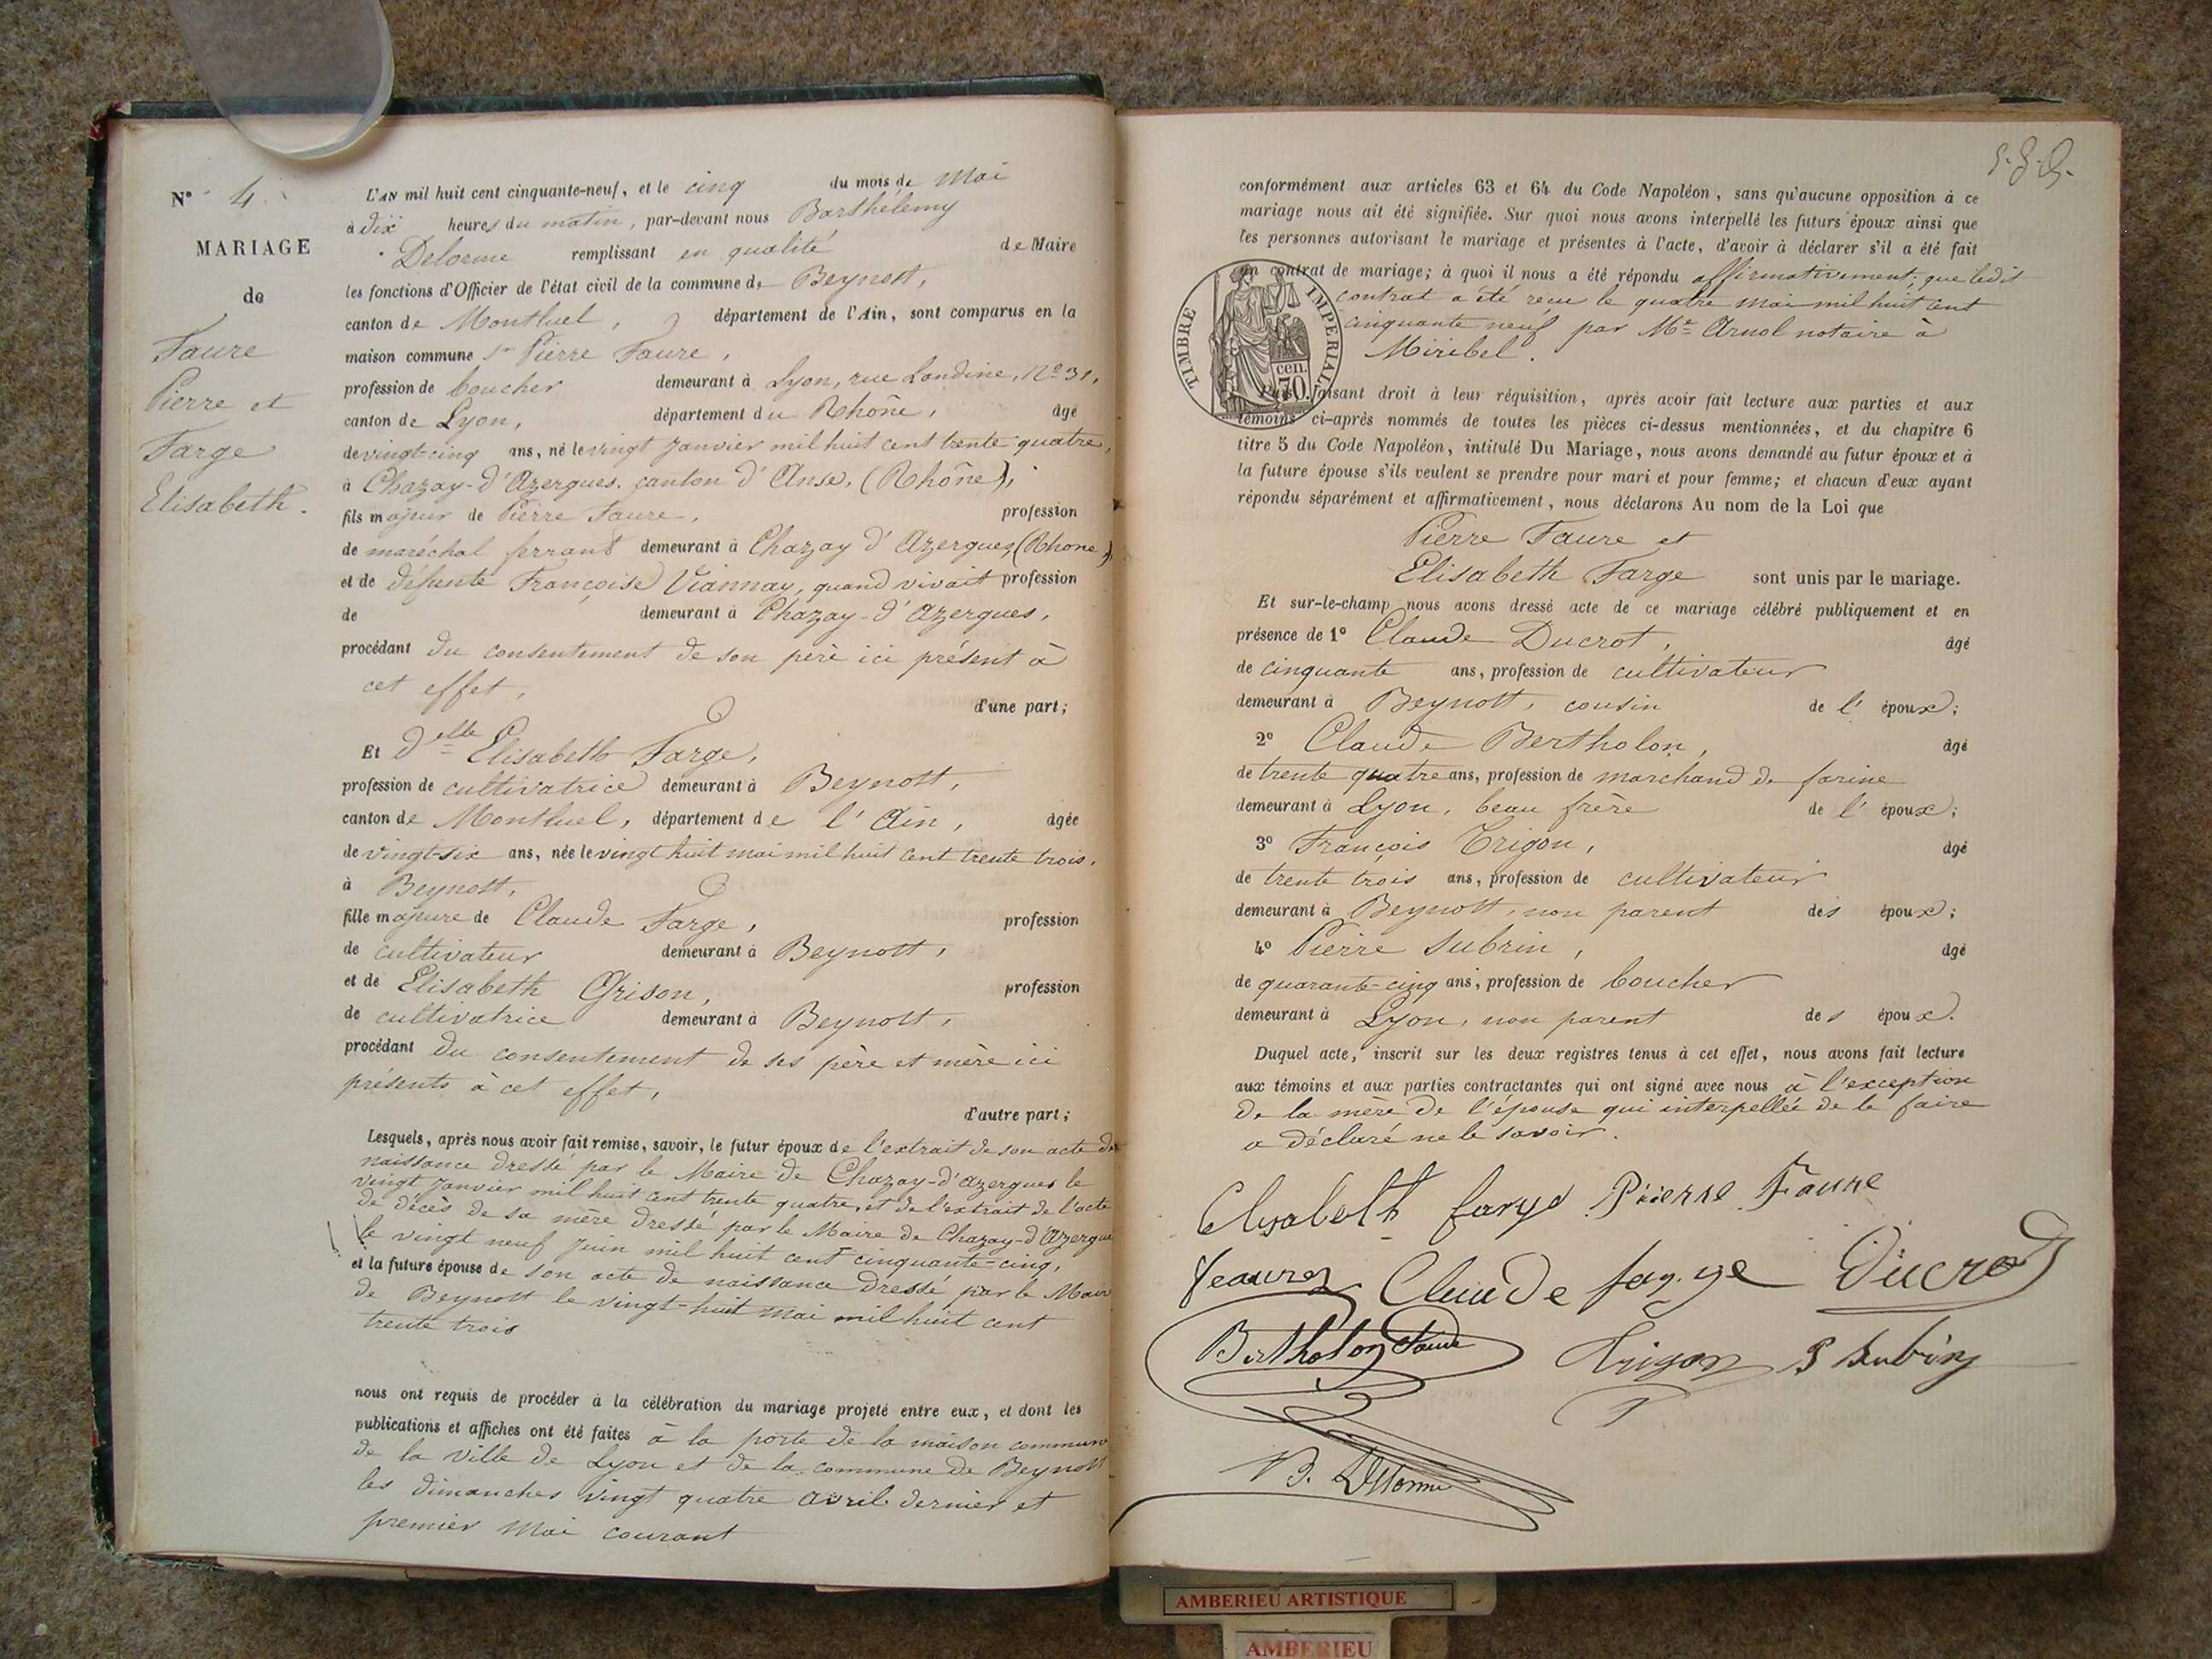 N° 4
MARIAGE
de
Faure
Pierre et
Farge
Elisabeth.
L'AN mil huit cent cinquante-neuf, et le cinq du mois de Mai
à dix heures du matin, par-devant nous Barthélemy
Delorme remplissant en qualité de Maire
les fonctions d'Officier de l'état civil de la commune de Beynost,
canton de Montluel, département de l'Ain, sont comparus en la
maison commune Sr Pierre Faure,
profession de boucher demeurant à Lyon, rue Landine, N° 31,
canton de Lyon, département du Rhône, âgé
de vingt-cinq ans, né le vingt Janvier mil huit cent trente quatre,
à Chazay-d'Azergues, canton d'Anse, (Rhône),
fils majeur de Pierre Faure, profession
de maréchal ferrant demeurant à Chazay d'Azergues, (Rhone)
et de défunte Françoise Viannay, quand vivait profession
de demeurant à Chazay-d'Azergues,
procédant du consentement de son père ici présent à
cet effet,
d'une part;
Et Delle Elisabeth Farge,
profession de cultivatrice demeurant à Beynost,
canton de Montluel, département de l'Ain, âgée
de vingt-six ans, née le vingt huit mai mil huit cent trente trois,
à Beynost,
fille majeure de Claude Farge, profession
de cultivateur demeurant à Beynost,
et de Elisabeth Grison, profession
de cultivatrice demeurant à Beynost,
procédant du consentement de ses père et mère ici
présents à cet effet,
d'autre part;
Lesquels, après nous avoir fait remise, savoir, le futur époux de l'extrait de son acte de
naissance dressé par le Maire de Chazay-d'Azergues le
vingt Janvier mil huit cent trente quatre, et de l'extrait de l'acte
de décès de sa mère dressé par le Maire de Chazay-d'Azergues
le vingt neuf Juin mil huit cent cinquante-cinq,
et la future épouse de son acte de naissance dressé par le Maire
de Beynost le vingt-huit mai mil huit cent
trente trois
nous ont requis de procéder à la célébration du mariage projeté entre eux, et dont les
publications et affiches ont été faites à la porte de la maison commune
de la ville de Lyon et de la commune de Beynost
les dimanches vingt quatre avril dernier et
premier Mai courant
conformément aux articles 63 et 64 du Code Napoléon, sans qu'aucune opposition à ce
mariage nous ait été signifiée. Sur quoi nous avons interpellé les futurs époux ainsi que
les personnes autorisant le mariage et présentes à l'acte, d'avoir à déclarer s'il a été fait
un contrat de mariage; à quoi il nous a été répondu affirmativement; que ledit
contrat a été reçu le quatre mai mil huit cent
cinquante neuf par Me Arnol notaire à
Miribel.
TIMBRE IMPERIAL
cen.
70.
faisant droit à leur réquisition, après avoir fait lecture aux parties et aux
témoins ci-après nommés de toutes les pièces ci-dessus mentionnées, et du chapitre 6
titre 5 du Code Napoléon, intitulé Du Mariage, nous avons demandé au futur époux et à
la future épouse s'ils veulent se prendre pour mari et pour femme; et chacun d'eux ayant
répondu séparément et affirmativement, nous déclarons Au nom de la Loi que
Pierre Faure et
Elisabeth Farge sont unis par le mariage.
Et sur-le-champ nous avons dressé acte de ce mariage célébré publiquement et en
présence de 1° Claude Ducrot, âgé
de cinquante ans, profession de cultivateur
demeurant à Beynost, cousin de l' époux;
2° Claude Bertholon, âgé
de trente quatre ans, profession de marchand de farine
demeurant à Lyon, beau frère de l' époux;
3° François Trigon, âgé
de trente trois ans, profession de cultivateur
demeurant à Beynost, non parent des époux;
4° Pierre Subrin, âgé
de quarante-cinq ans, profession de boucher
demeurant à Lyon, non parent des époux.
Duquel acte, inscrit sur les deux registres tenus à cet effet, nous avons fait lecture
aux témoins et aux parties contractantes qui ont signé avec nous à l'exception
de la mère de l'épouse qui interpellée de le faire
a déclaré ne le savoir.
Elisabeth farge Pierre Faure
Claude farge Ducrot
Bertholon Claude Trigon P Subrin
B. Delorme
AMBERIEU ARTISTIQUE
AMBERIEU